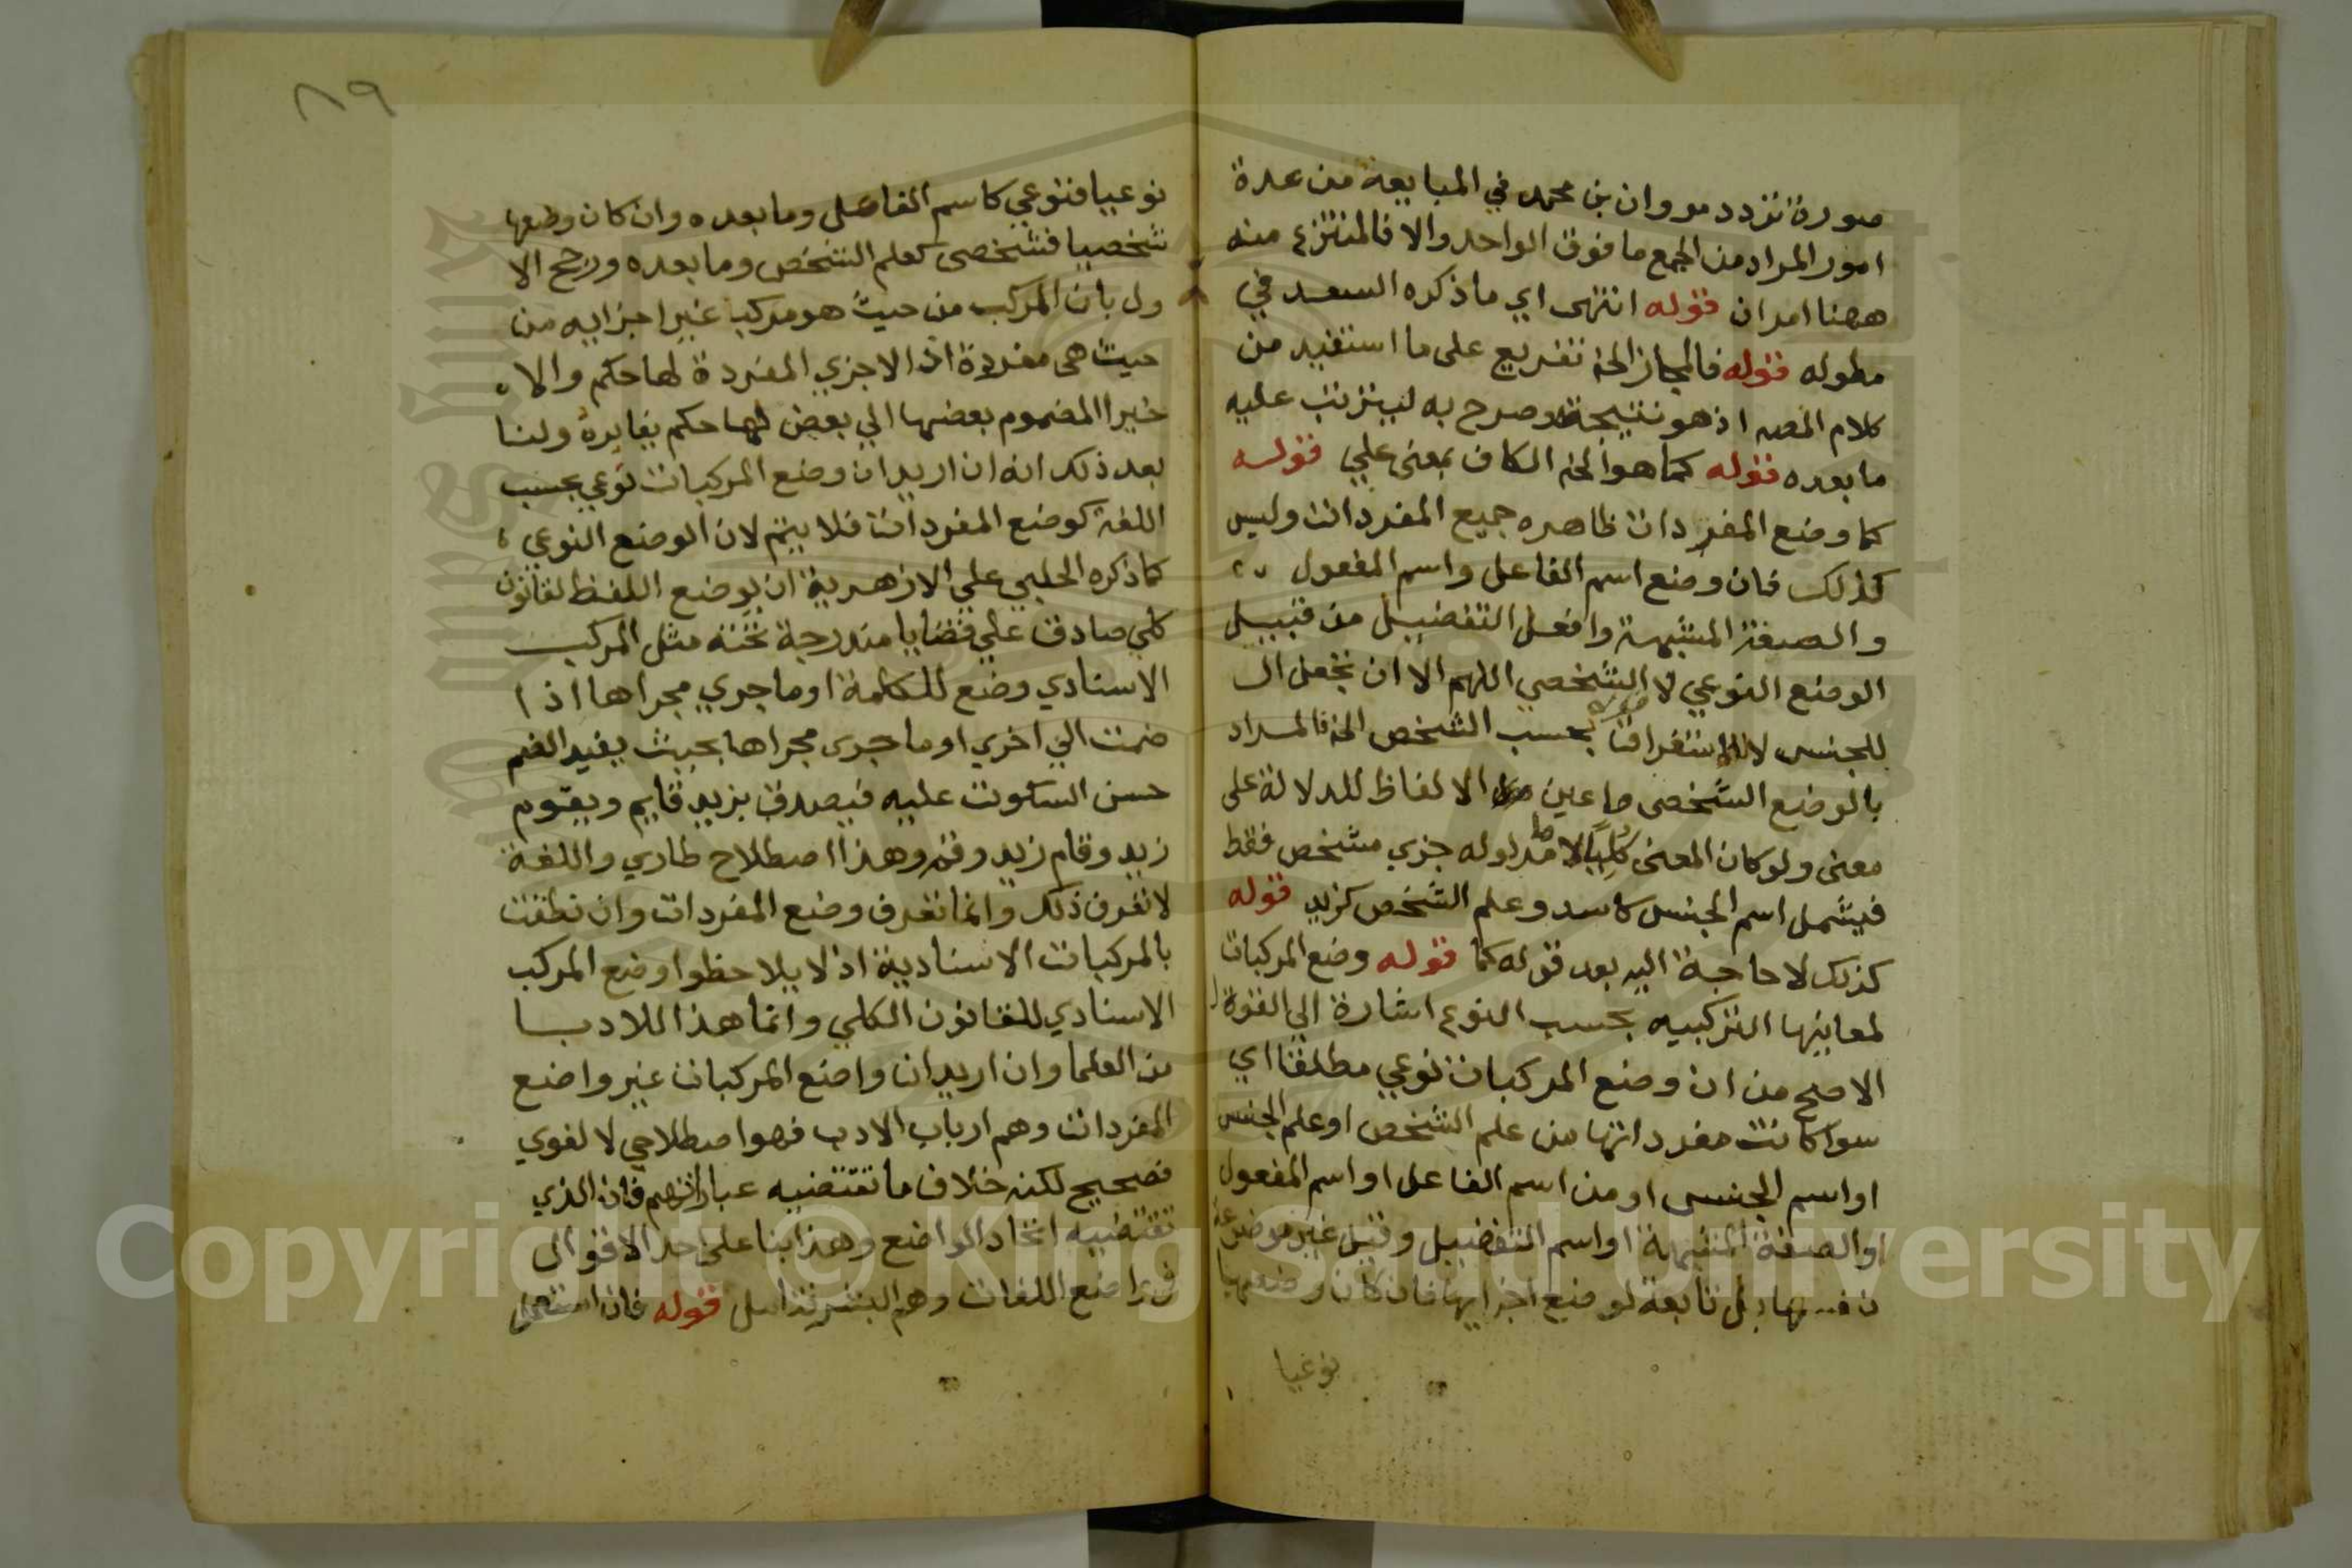 صورة تردد مروان بن محمد في المبايعة من عدة
امور المراد من الجمع ما فوق الواحد والا فالمنتزع منه
ههنا امران قوله انتهى اي ما ذكره السعد في
مطوله قوله فالمجاز الخ تفريع على ما استفيد من
كلام المصه اذ هو نتيجة وصرح به ليترتب عليه
ما بعده قوله كما هو الخ الكاف بمعنى علي قوله
كما وضع المفردات ظاهره جميع المفردات وليس
كذلك فان وضع اسم الفاعل واسم المفعول
والصفة المشبهة وافعل التفضيل من قبيل
الوضع النوعي لا الشخصي اللهم الا ان تجعل ال
للجنس لا للاستغراق قوله بحسب الشخص الخ فالمراد
بالوضع الشخصي ما عين من الالفاظ للدلالة على
معنى ولو كان المعنى كليا لا ما مدلوله جزي مشخص فقط
فيشمل اسم الجنس كاسد وعلم الشخص كزيد قوله
كذلك لا حاجة اليه بعد قوله كما قوله وضع المركبات
لمعانيها التركيبيه بحسب النوع اشارة الي القول
الاصح من ان وضع المركبات نوعي مطلقا اي
سوا كانت مفرداتها من علم الشخص او علم الجنس
او اسم الجنس او من اسم الفاعل او اسم المفعول
او الصفة المشبهة او اسم التفضيل وقيل غير موضوعة
بل تابعة لوضع اجزايها فان كان وضعها
نوعيا
٨٩
نوعيا فنوعي كاسم الفاعل وما بعده وان كان وضعها
شخصيا فشخصي كعلم الشخص وما بعده ورجح الا
ول بان المركب من حيث هو مركبا غير اجزايه من
حيث هي مفردة اذ الاجزي المفردة لها حكم والا
خيرا المضموم بعضها الي بعض لها حكم يغايره ولنا
بعد ذلك انه ان اريد ان وضع المركبات نوعي بحسب
اللغة كوضع المفردات فلا يتم لان الوضع النوعي
كما ذكره الحلبي علي الازهرية ان يوضع اللفظ لقانون
كلي صادق علي قضايا مندرجة تحته مثل المركب
الاسنادي وضع للكلمة او ما جري مجراها اذا
ضمت الي اخري او ما جرى مجراها بحيث يفيد الضم
حسن السكوت عليه فيصدق بزيد قايم ويقوم
زيد وقام زيد وقم وهذا اصطلاح طاري واللغة
لا تعرف ذلك وانما تعرف وضع المفردات وان نطقت
بالمركبات الاسنادية اذ لا يلاحظوا وضع المركب
الاسنادي للقانون الكلي وانما هذا للادبا
من العلما وان اريد ان واضع المركبات غير واضع
المفردات وهم ارباب الادب فهو اصطلاحي لا لغوي
فصحيح لكنه خلاف ما تقتضيه عباراتهم فان الذي
تقتضيه اتحاد الواضع وهذا بنا على احد الاقوال
في واضع اللغات وهم البشر تامل قوله فان استعمل
Copyright © King Saud University